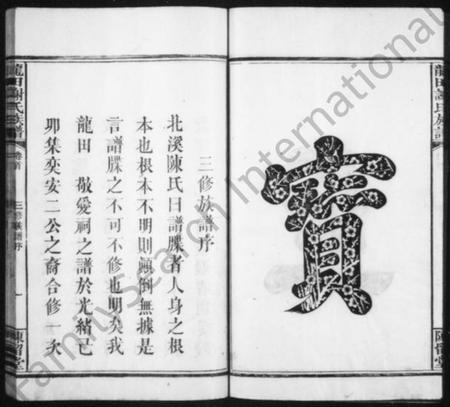 龍田謝氏族譜
陳留堂
寶
三修族譜序
北溪陳氏曰譜牒者人身之根
本也根本不明則顚倒無據是
言譜牒之不可不修也明矣我
龍田 敬愛祠之譜於光緒己
丣集奕安二公之裔合修一次
龍田謝氏族譜
卷首
三修族譜序
一
陳留堂
FamilySearch International